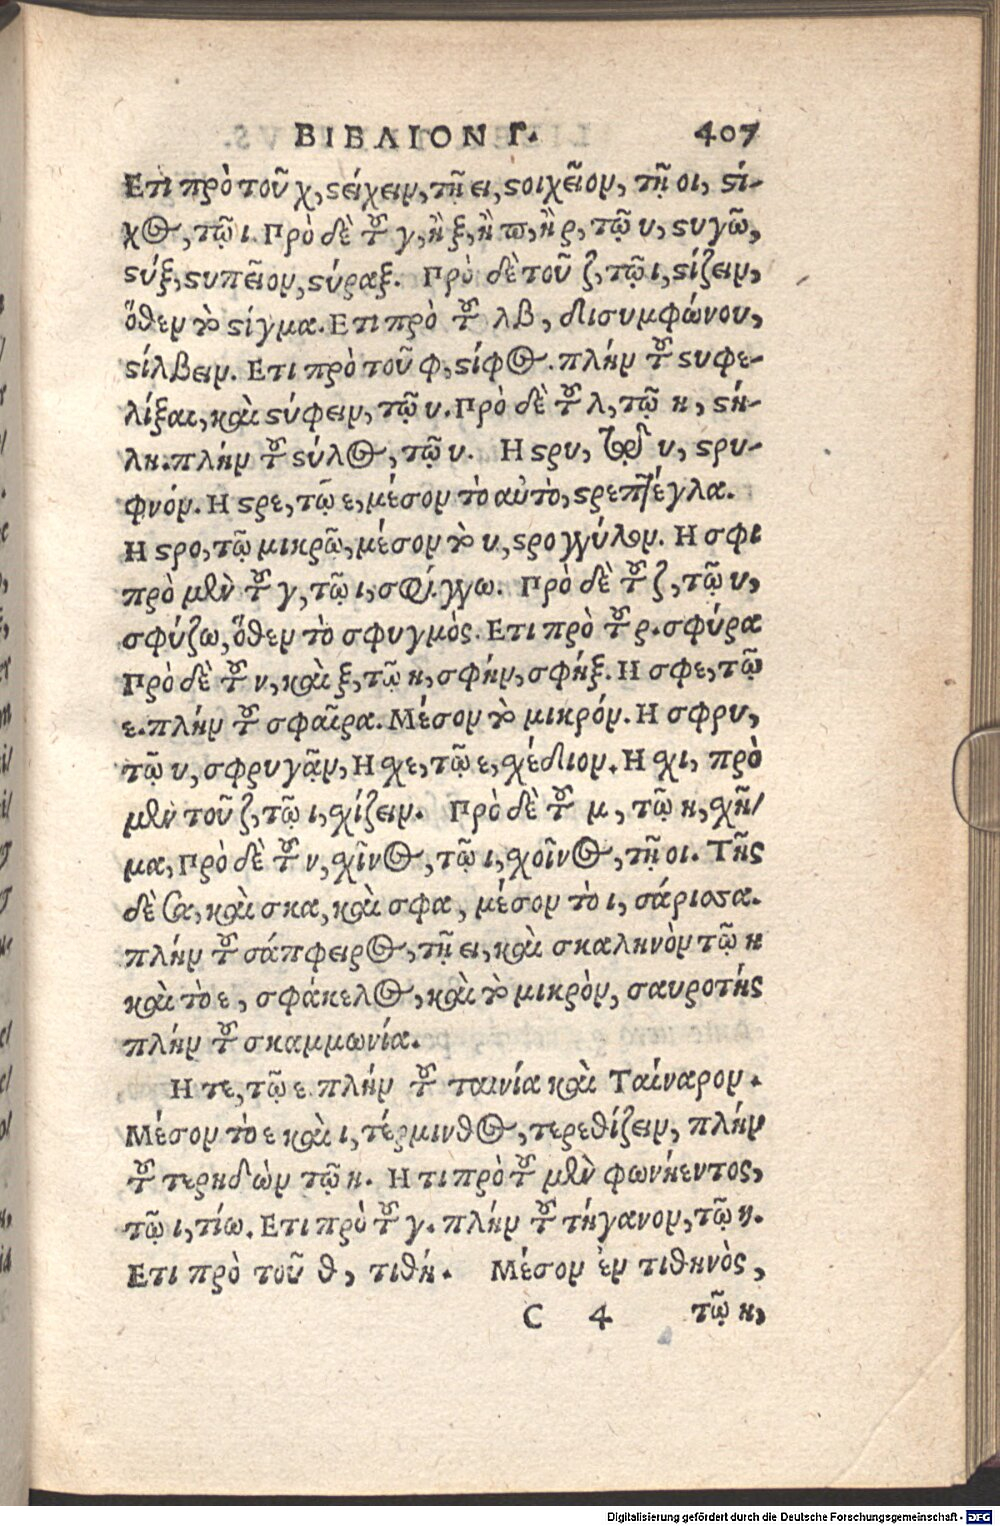 ΒΙΒΛΙΟΝ Γ. 407
Ετι πρὸ τοῦ χ, ϛείχειν, τῇ ει, ϛοιχεῖον, τῇ οι, ϛί-
χος, τῷ ι. Πρὸ δὲ τοῦ γ, ἢ ξ, ἢ π, ἢ ρ, τῷ υ, ϛυγῶ,
ϛύξ, ϛυπεῖον, ϛύραξ. Πρὸ δὲ τοῦ ζ, τῷ ι, ϛίζειν,
ὅθεν τὸ ϛίγμα. Ετι πρὸ τοῦ λβ, δισυμφώνου,
ϛίλβειν. Ετι πρὸ τοῦ φ, ϛίφος. πλήν τοῦ ϛυφε-
λίξαι, καὶ ϛύφειν, τῷ υ. Πρὸ δὲ τοῦ λ, τῷ η, ϛή-
λη. πλήν τοῦ ϛύλος, τῷ υ. Η ϛρυ, υ, ϛρυ-
φνόν. Η ϛρε, τῷ ε, μέσον τὸ αὐτὸ, ϛρεπτέγλα.
Η ϛρο, τῷ μικρῷ, μέσον τὸ υ, ϛρογγύλον. Η σφι
πρὸ μὲν τοῦ γ, τῷ ι, σφίγγω. Πρὸ δὲ τοῦ ζ, τῷ υ,
σφύζω, ὅθεν τὸ σφυγμὸς. Ετι πρὸ τοῦ ρ. σφύρα
Πρὸ δὲ τοῦ ν, καὶ ξ, τῷ η, σφήν, σφήξ. Η σφε, τῷ
ε. πλήν τοῦ σφαῖρα. Μέσον τὸ μικρόν. Η σφρυ,
τῷ υ, σφρυγᾷν, Η σχε, τῷ ε, σχέδιον. Η σχι, πρὸ
μὲν τοῦ ζ, τῷ ι, σχίζειν. Πρὸ δὲ τοῦ μ, τῷ η, σχῆ/
μα, Πρὸ δὲ τοῦ ν, σχῖνος, τῷ ι, σχοῖνος, τῇ οι. Τῆς
δὲ σα, καὶ σκα, καὶ σφα, μέσον τὸ ι, σάριϛα.
πλήν τοῦ σάπφειρος, τῇ ει, καὶ σκαληνὸν τῷ η
καὶ τὸ ε, σφάκελος, καὶ τὸ μικρὸν, σαυροτής
πλήν τοῦ σκαμμωνία.
Η τε, τῷ ε πλήν τοῦ ταινία καὶ Ταίναρον.
Μέσον τὸ ε καὶ ι, τέρμινθος, τερεθίζειν, πλήν
τοῦ τερηδὼν τῷ η. Η τι πρὸ τοῦ μὲν φωνήεντος,
τῷ ι, τίω. Ετι πρὸ τοῦ γ. πλήν τοῦ τήγανον, τῷ η.
Ετι πρὸ τοῦ θ, τιθή. Μέσον ἐν τιθηνὸς,
C 4 τῷ η,
Digitalisierung gefördert durch die Deutsche Forschungsgemeinschaft - DFG